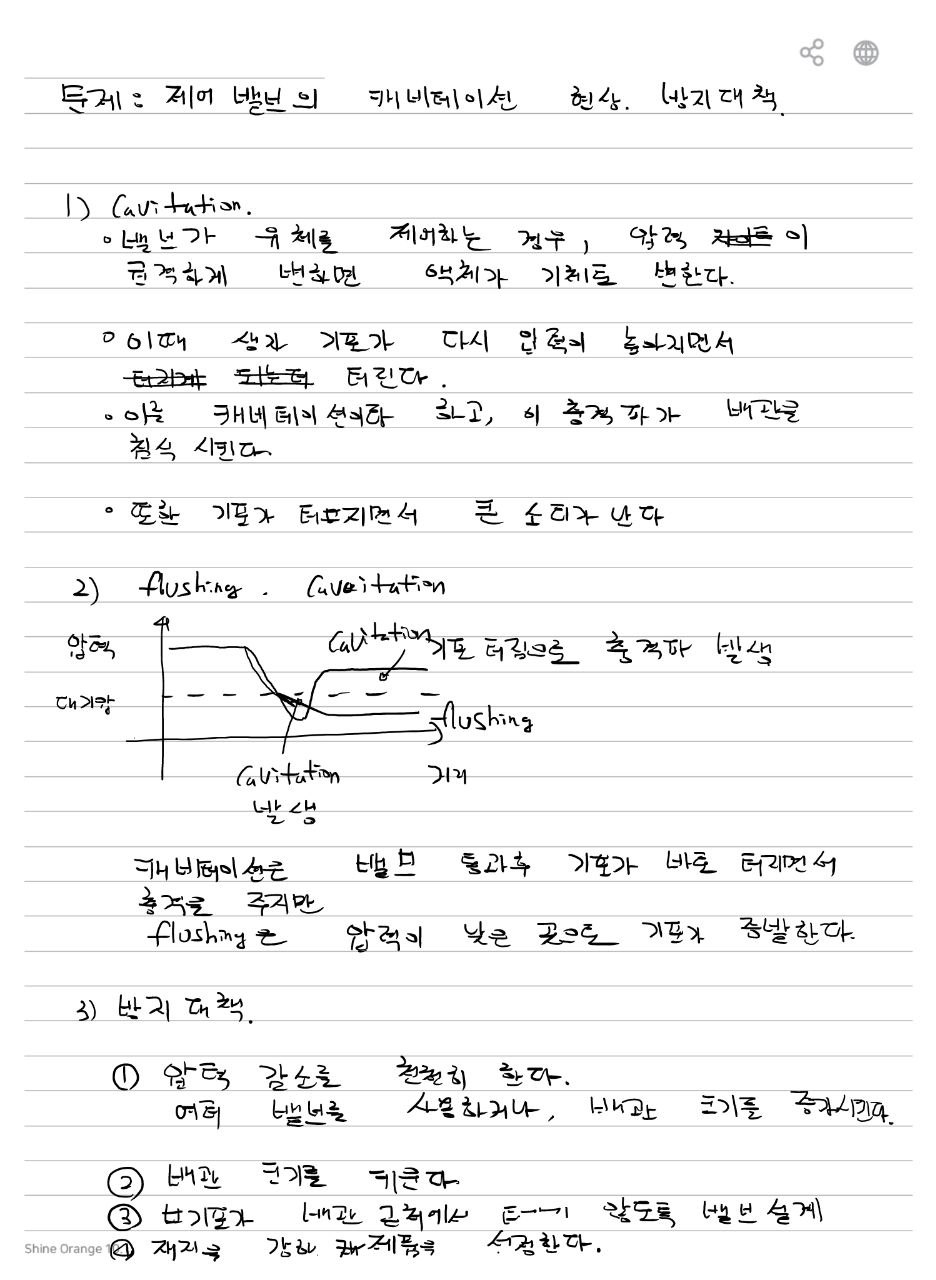 문제: 제어 밸브의 캐비테이션 현상. 방지대책.
1) Cavitation.
◦ 밸브가 유체를 제어하는 경우, 압력 이
급격하게 변하면 액체가 기체로 변한다.
◦ 이때 생긴 기포가 다시 압력이 높아지면서
터린다.
◦ 이를 캐비테이션이라 하고, 이 충격파가 배관을
침식 시킨다
◦ 또한 기포가 터프지면서 큰 소리가 난다
2) flushing. Cavitation
압력
Cavitation 기포 터짐으로 충격파 발생
대기압
flushing
Cavitation 거리
발생
캐비테이션은 밸브 통과후 기포가 바로 터지면서
충격을 주지만
flushing은 압력이 낮은 곳으로 기포가 증발한다.
3) 방지 대책.
① 압력 감소를 천천히 한다.
여러 밸브를 사용하거나, 배관 크기를 증가시킨다.
② 배관 크기를 키운다
③ 기포가 배관 근처에서 않도록 밸브 설계
④ 재질을 강한 제품을 선정한다.
Shine Orange